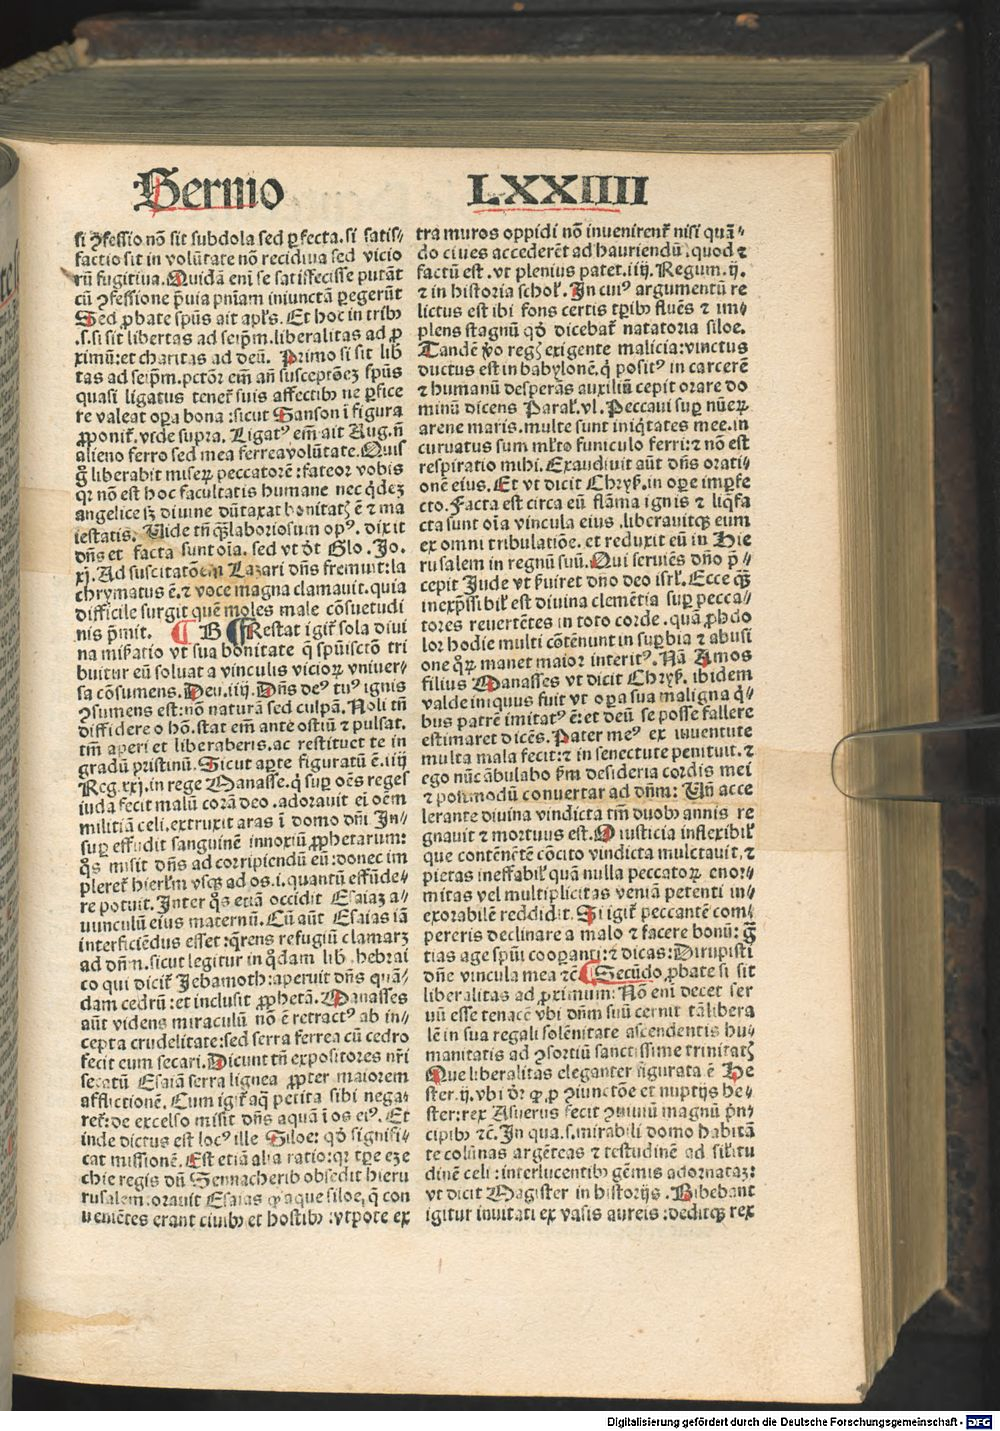 Sermo LXXIIII
si ꝯfessio nō sit subdola sed ꝑfecta. si satis⸗
factio sit in volūtate nō recidiua sed vicio
rū fugitiua. Quidā enī se satisfecisse putāt
cū ꝯfessione p̄uia pn̄iam iniunctā peregerūt
Sed ꝓbate spūs ait apl's. Et hoc in tribꝰ
.s. si sit libertas ad seip̄m. liberalitas ad ꝓ
ximū: et charitas ad deū. Primo si sit lib
tas ad seip̄m. pctōr em̄ an̄ susceptōeꝫ spūs
quasi ligatus tenet̄ suis affectibꝰ ne ꝑfice
re valeat oꝑa bona: sicut Sanson ī figura
ꝓponit̄. vide supra. Ligatꝰ em̄ ait Aug. n̄
alieno ferro sed mea ferrea volūtate. Quis
g̊ liberabit miseꝝ peccatorē: fateor vobis
qꝛ nō est hoc facultatis humane nec q̇deꝫ
angelice sꝫ diuine dūtaxat bonitatꝭ ē ⁊ ma
iestatis. Uide tn̄ q̄ꝫ laboriosum opꝰ. dixit
dn̄s et facta sunt oīa. sed vt dr̄ Glo. Jo.
xj. Ad suscitatōem Lazari dn̄s fremuit: la
chrymatus ē. ⁊ voce magna clamauit. quia
difficile surgit quē moles male cōsuetudi
nis p̄mit. ¶ B ¶ Restat igit̄ sola diui
na miꝑatio vt sua bonitate q̄ spūiscto tri
buitur eū soluat a vinculis vicioꝝ vniuer⸗
sa cōsumens. Deu. iiij. Dn̄s deꝰ tuꝰ ignis
ꝯsumens est: nō naturā sed culpā. Noli tn̄
diffidere o hō. stat em̄ ante ostiū ⁊ pulsat.
tm̄ aperi et liberaberis. ac restituet te in
gradū pristinū. Sicut aꝑte figuratū ē. iiij
Reg. xxj. in rege Manasse. q̇ suꝑ oēs reges
iuda fecit malū corā deo. adorauit ei oēm
militiā celi. extruxit aras ī domo dn̄i In⸗
suꝑ effudit sanguinē innoxiū ꝓphetarum:
q̇s misit dn̄s ad corripiendū eū: donec im
pleret hierl'm vsqꝫ ad os. i. quantū effūde⸗
re potuit. Inter q̇s etiā occidit Esaiaꝫ a⸗
uunculū eius maternū. Cū aūt Esaias iā
interficiēdus esset: q̄rens refugiū clamaꝛꝫ
ad dn̄m. sicut legitur in q̇dam lib. hebrai
co qui dicit̄ Jebamoth: aperuit dn̄s quā⸗
dam cedrū: et inclusit ꝓphetā. Manasses
aūt videns miraculū nō ē retractꝰ ab in⸗
cepta crudelitate: sed serra ferrea cū cedro
fecit eum secari. Dicunt tn̄ expositores nr̄i
secatū Esaiā serra lignea ꝓpter maiorem
afflictionē. Cum igit̄ aq̄ petita sibi nega⸗
ret̄: de excelso misit dn̄s aquā ī os eiꝰ. Et
inde dictus est locꝰ ille Siloe: qd̄ signifi⸗
cat missionē. Est etiā alia ratio: qꝛ tꝑe eze
chie regis dū Sennacherib obsedit hieru
rusalem. orauit Esaias ꝓ aque siloe, q̄ con
ueniētes erant ciuibꝰ et hostibꝰ: vtpote ex
tra muros oppidi nō inuenirent̄ nisi quā⸗
do ciues accederēt ad hauriendū. quod ⁊
factū est. vt plenius patet. iiij. Regum. ij.
⁊ in historia schol'. In cuiꝰ argumētū re
lictus est ibi fons certis tꝑibꝰ fluēs ⁊ im⸗
plens stagnū qd̄ dicebat̄ natatoria siloe.
Tandē ꝟo regꝭ exigente malicia: vinctus
ductus est in babylonē. q̇ positꝰ in carcerē
⁊ humanū desperās auxiliū cepit orare do
minū dicens Paral'. vl. Peccaui suꝑ nūeꝝ
arene maris. multe sunt iniq̇tates mee. in
curuatus sum ml'to funiculo ferri: ⁊ nō est
respiratio mihi. Exaudiuit aūt dn̄s orati⸗
onē eius. Et vt dicit Chryſ'. in oꝑe imꝑfe
cto. Facta est circa eū flāma ignis ⁊ liq̄fa
cta sunt oīa vincula eius. liberauitqꝫ eum
ex omni tribulatiōe. et reduxit eū in Hie
rusalem in regnū suū. Qui seruiēs dn̄o p̄⸗
cepit Jude vt ẜuiret dn̄o deo isrl'. Ecce q̄ꝫ
inexp̄ssibil' est diuina clemētia suꝑ pecca⸗
tores reuertētes in toto corde. quā ꝓhdo
lor hodie multi cōtēnunt in suꝑbia ⁊ abusi
one q̊ꝝ manet maior interitꝰ. Nā Amos
filius Manasses vt dicit Chryſ'. ibidem
valde iniquus fuit vt oꝑa sua maligna q̇⸗
bus patrē imitatꝰ ē: et deū se posse fallere
estimaret dicēs. Pater meꝰ ex iuuentute
multa mala fecit: ⁊ in senectute penituit. ⁊
ego nūc ābulabo ẜm desideria cordis mei
⁊ postmodū conuertar ad dn̄m: Un̄ acce
lerante diuina vindicta tm̄ duobꝰ annis re
gnauit ⁊ mortuus est. O iusticia inflexibil'
que contēnētē cōcito vindicta mulctauit, ⁊
pietas ineffabil' quā nulla peccatoꝝ enor⸗
mitas vel multiplicitas veniā petenti in⸗
exorabilē reddidit. Si igit̄ peccantē com⸗
pereris declinare a malo ⁊ facere bonū: ḡ
tias age spūi cooperanti: ⁊ dicas: Dirupisti
dn̄e vincula mea ⁊c̄. ¶ Secūdo ꝓbate si sit
liberalitas ad ꝓximum: Nō enī decet ser
uū esse tenacē vbi dn̄m suū cernit tā libera
lē in sua regali solēnitate ascendentis hu⸗
manitatis ad ꝯsortiū sanctissime trinitatꝭ
Que liberalitas eleganter figurata ē He
ster. ij. vbi dr̄ ꝙ ꝓ ꝯiunctōe et nuptijs he⸗
ster: rex Asuerus fecit ꝯuiuiū magnū p̄n⸗
cipibꝰ ⁊c̄. In qua. s. mirabili domo habitā
te colūnas argēteas ⁊ testudinē ad sil'itu
dinē celi: interlucentibꝰ gēmis adornataꝫ:
vt dicit Magister in historijs. Bibebant
igitur inuitati ex vasis aureis: deditqꝫ rex
Digitalisierung gefördert durch die Deutsche Forschungsgemeinschaft - DFG